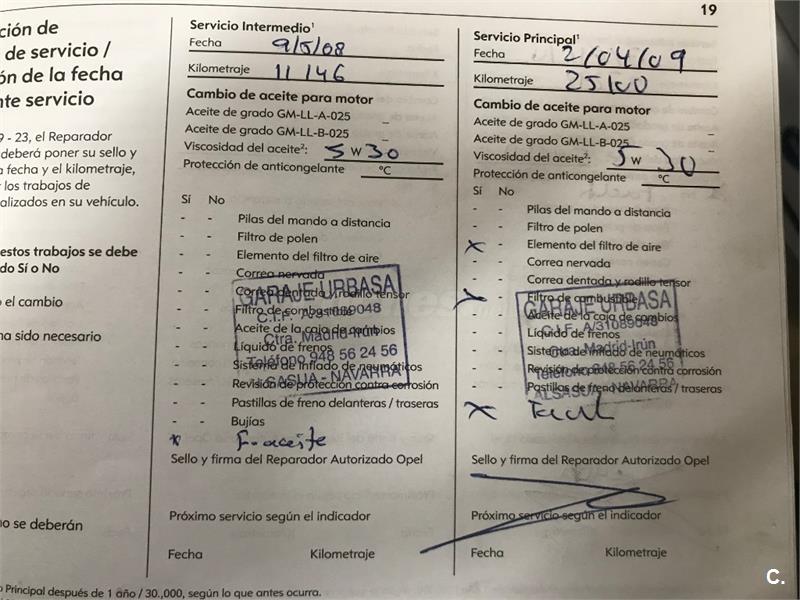 19
ción de
de servicio /
ón de la fecha
nte servicio
9 - 23, el Reparador
deberá poner su sello y
a fecha y el kilometraje,
los trabajos de
alizados en su vehículo.
estos trabajos se debe
do Sí o No
o el cambio
na sido necesario
no se deberán
Servicio Intermedio¹
Fecha 9/5/08
Kilometraje 11146
Cambio de aceite para motor
Aceite de grado GM-LL-A-025 _
Aceite de grado GM-LL-B-025 _
Viscosidad del aceite²: 5 W 30
Protección de anticongelante °C
Sí No
- - Pilas del mando a distancia
- - Filtro de polen
- - Elemento del filtro de aire
- - Correa nervada
- - Correa dentada y rodillo tensor
- - Filtro de combustible
- - Aceite de la caja de cambios
- - Líquido de frenos
- - Sistema de inflado de neumáticos
- - Revisión de protección contra corrosión
- - Pastillas de freno delanteras / traseras
- - Bujías
x F. aceite
GARAJE URBASA
C.I.F. A/31089048
Ctra. Madrid-Irún
Teléfono 948 56 24 56
ALSASUA - NAVARRA
Sello y firma del Reparador Autorizado Opel
Próximo servicio según el indicador
Fecha Kilometraje
Servicio Principal¹
Fecha 2/04/09
Kilometraje 25100
Cambio de aceite para motor
Aceite de grado GM-LL-A-025 _
Aceite de grado GM-LL-B-025 _
Viscosidad del aceite²: 5 W 30
Protección de anticongelante °C
Sí No
- - Pilas del mando a distancia
- - Filtro de polen
x - Elemento del filtro de aire
- - Correa nervada
- - Correa dentada y rodillo tensor
x - Filtro de combustible
- - Aceite de la caja de cambios
- - Líquido de frenos
- - Sistema de inflado de neumáticos
- - Revisión de protección contra corrosión
- - Pastillas de freno delanteras / traseras
x
GARAJE URBASA
C.I.F. A/31089048
Ctra. Madrid-Irún
Teléfono 948 56 24 56
ALSASUA - NAVARRA
Sello y firma del Reparador Autorizado Opel
Próximo servicio según el indicador
Fecha Kilometraje
o Principal después de 1 año / 30.,000, según lo que antes ocurra.
C.